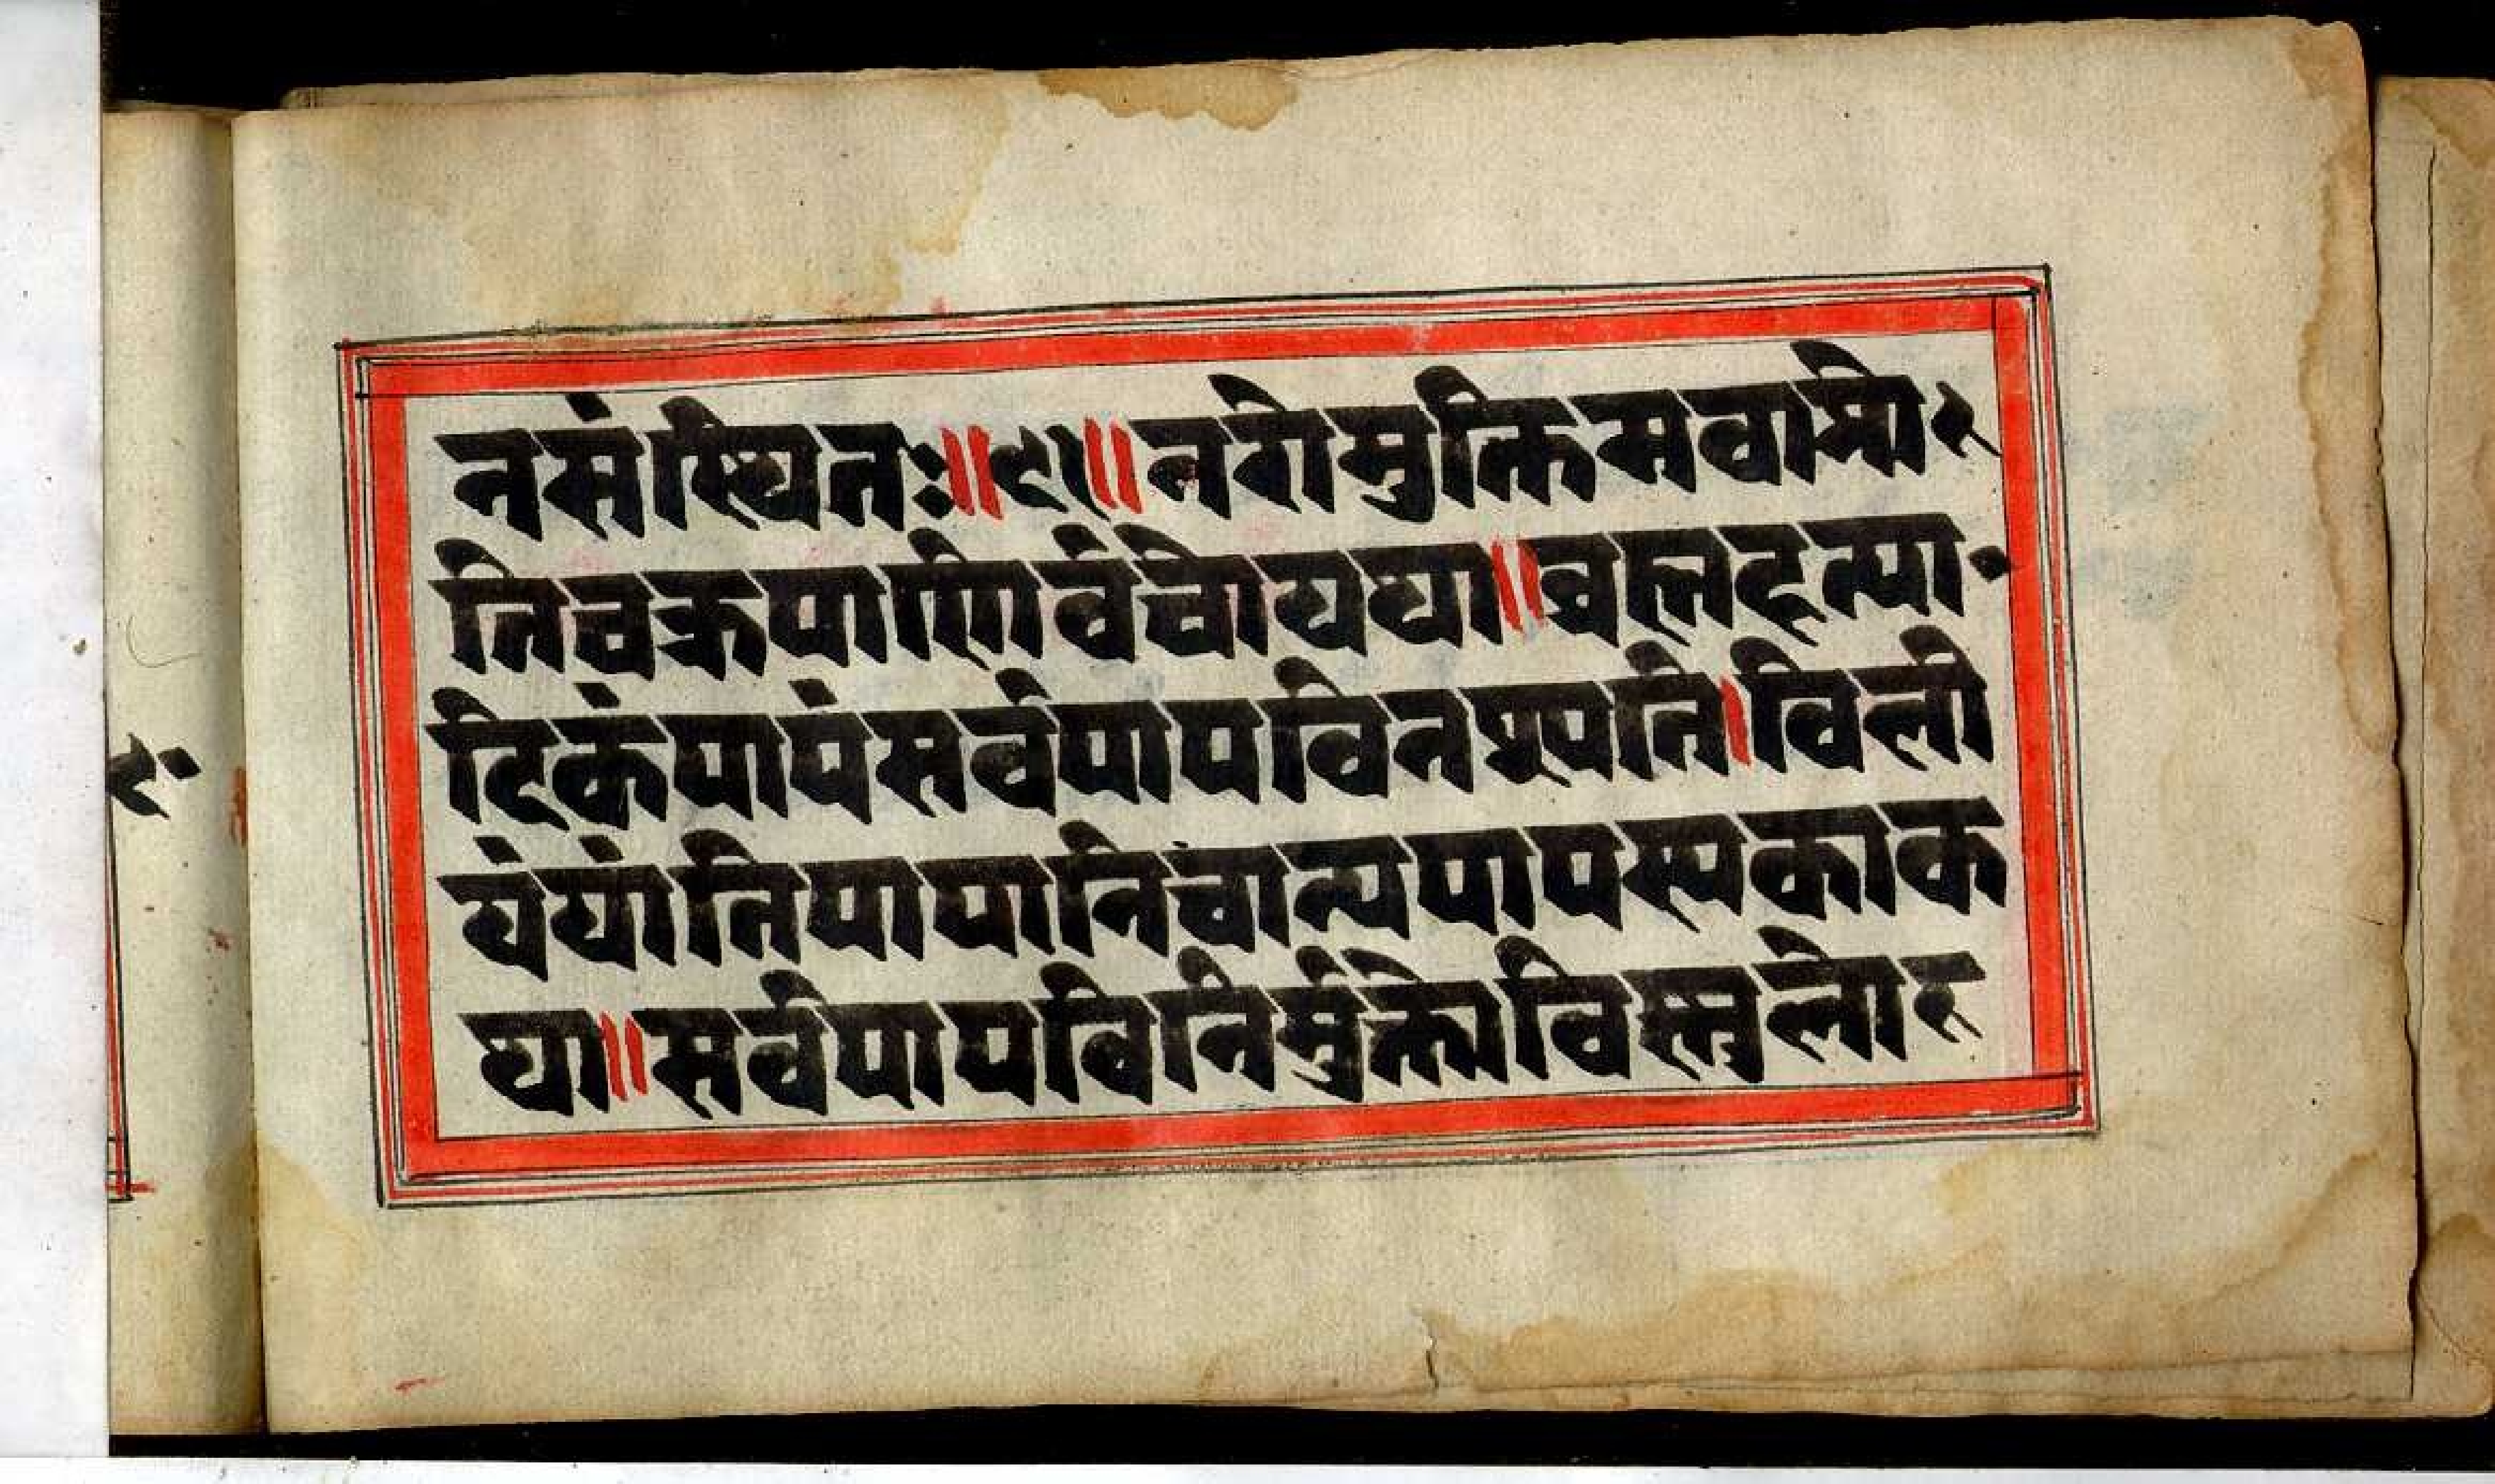 नसंस्थितः॥९॥नरोमुक्तिमवाप्नोर
तिचक्रपाणिर्वचोयथा॥ब्रह्महत्या॰
टिकंपापंसर्वपापविनश्पति।विली
यंयांतिपापानिचान्यपापस्पकाक
था॥सर्वपापविनिर्मुक्तोविस्मुलोर